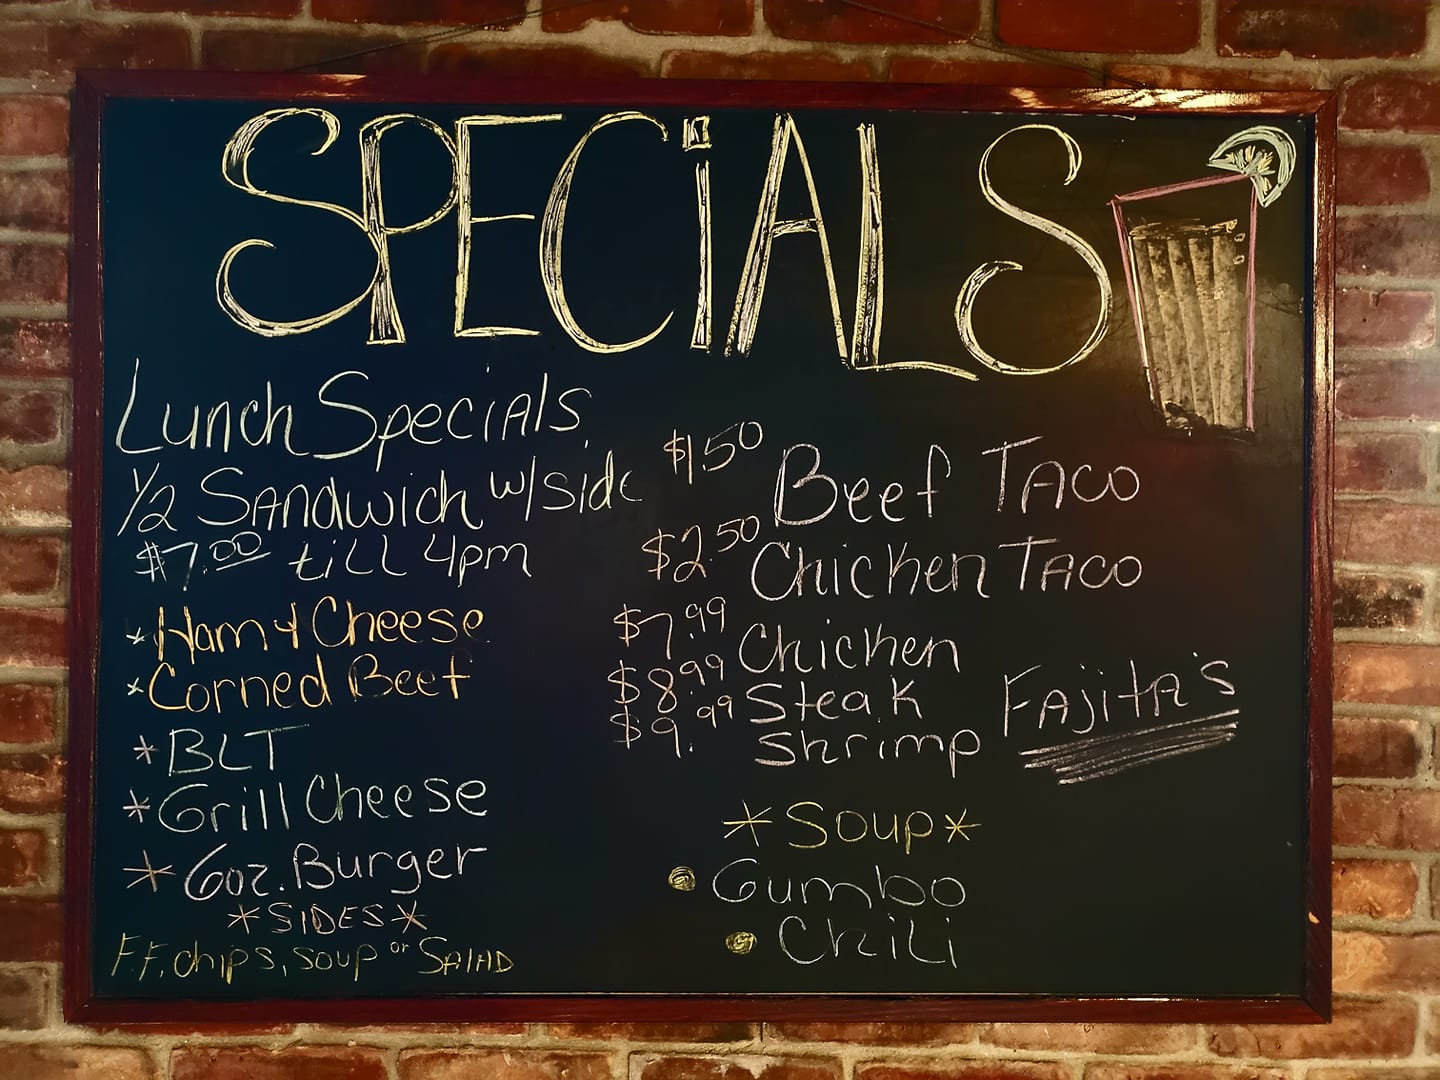 SPECiALS
Lunch Specials
1/2 Sandwich w/side
$7.00 till 4pm
* Ham & Cheese
* Corned Beef
* BLT
* Grill Cheese
* 6oz. Burger
* SIDES *
F.F, chips, soup or SALAD
$1.50 Beef TACO
$2.50 Chicken TACO
$7.99 Chicken
$8.99 Steak
$9.99 Shrimp
FAjitA's
* Soup *
Gumbo
Chili